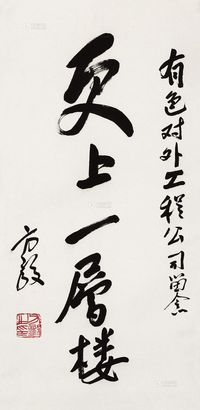 有色对外工程公司留念
更上一层楼
方毅